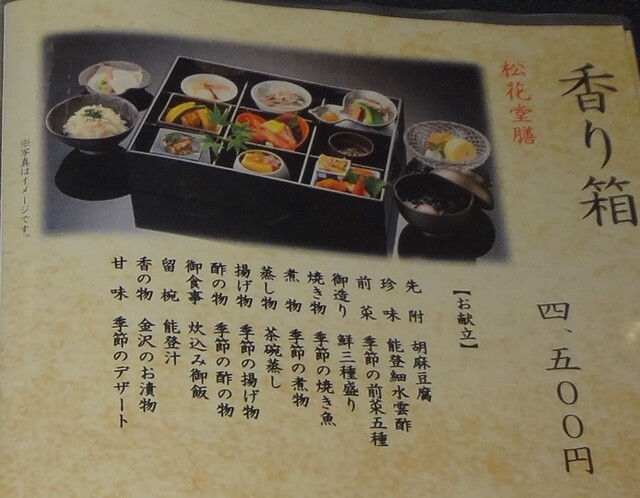 香り箱
松花堂膳
四、五〇〇円
【お献立】
先附 胡麻豆腐
珍味 能登細水雲酢
前菜 季節の前菜五種
御造り 鮮三種盛り
焼き物 季節の焼き魚
煮物 季節の煮物
蒸し物 茶碗蒸し
揚げ物 季節の揚げ物
酢の物 季節の酢の物
御食事 炊込み御飯
留椀 能登汁
香の物 金沢のお漬物
甘味 季節のデザート
※写真はイメージです。